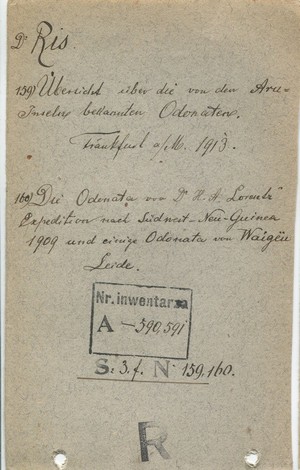 Dr Ris.
159) Übersicht über die von den Aru-
Inseln bekannten Odonaten.
Frankfurt a/M. 1913.
160) Die Odonata von Dr H. A. Lorentz'
Expedition nach Südwest-Neu-Guinea
1909 und einige Odonata von Waigëu
Leide.
Nr. inwentarza
A — 590,591
S: 3. f. N 159.160.
R